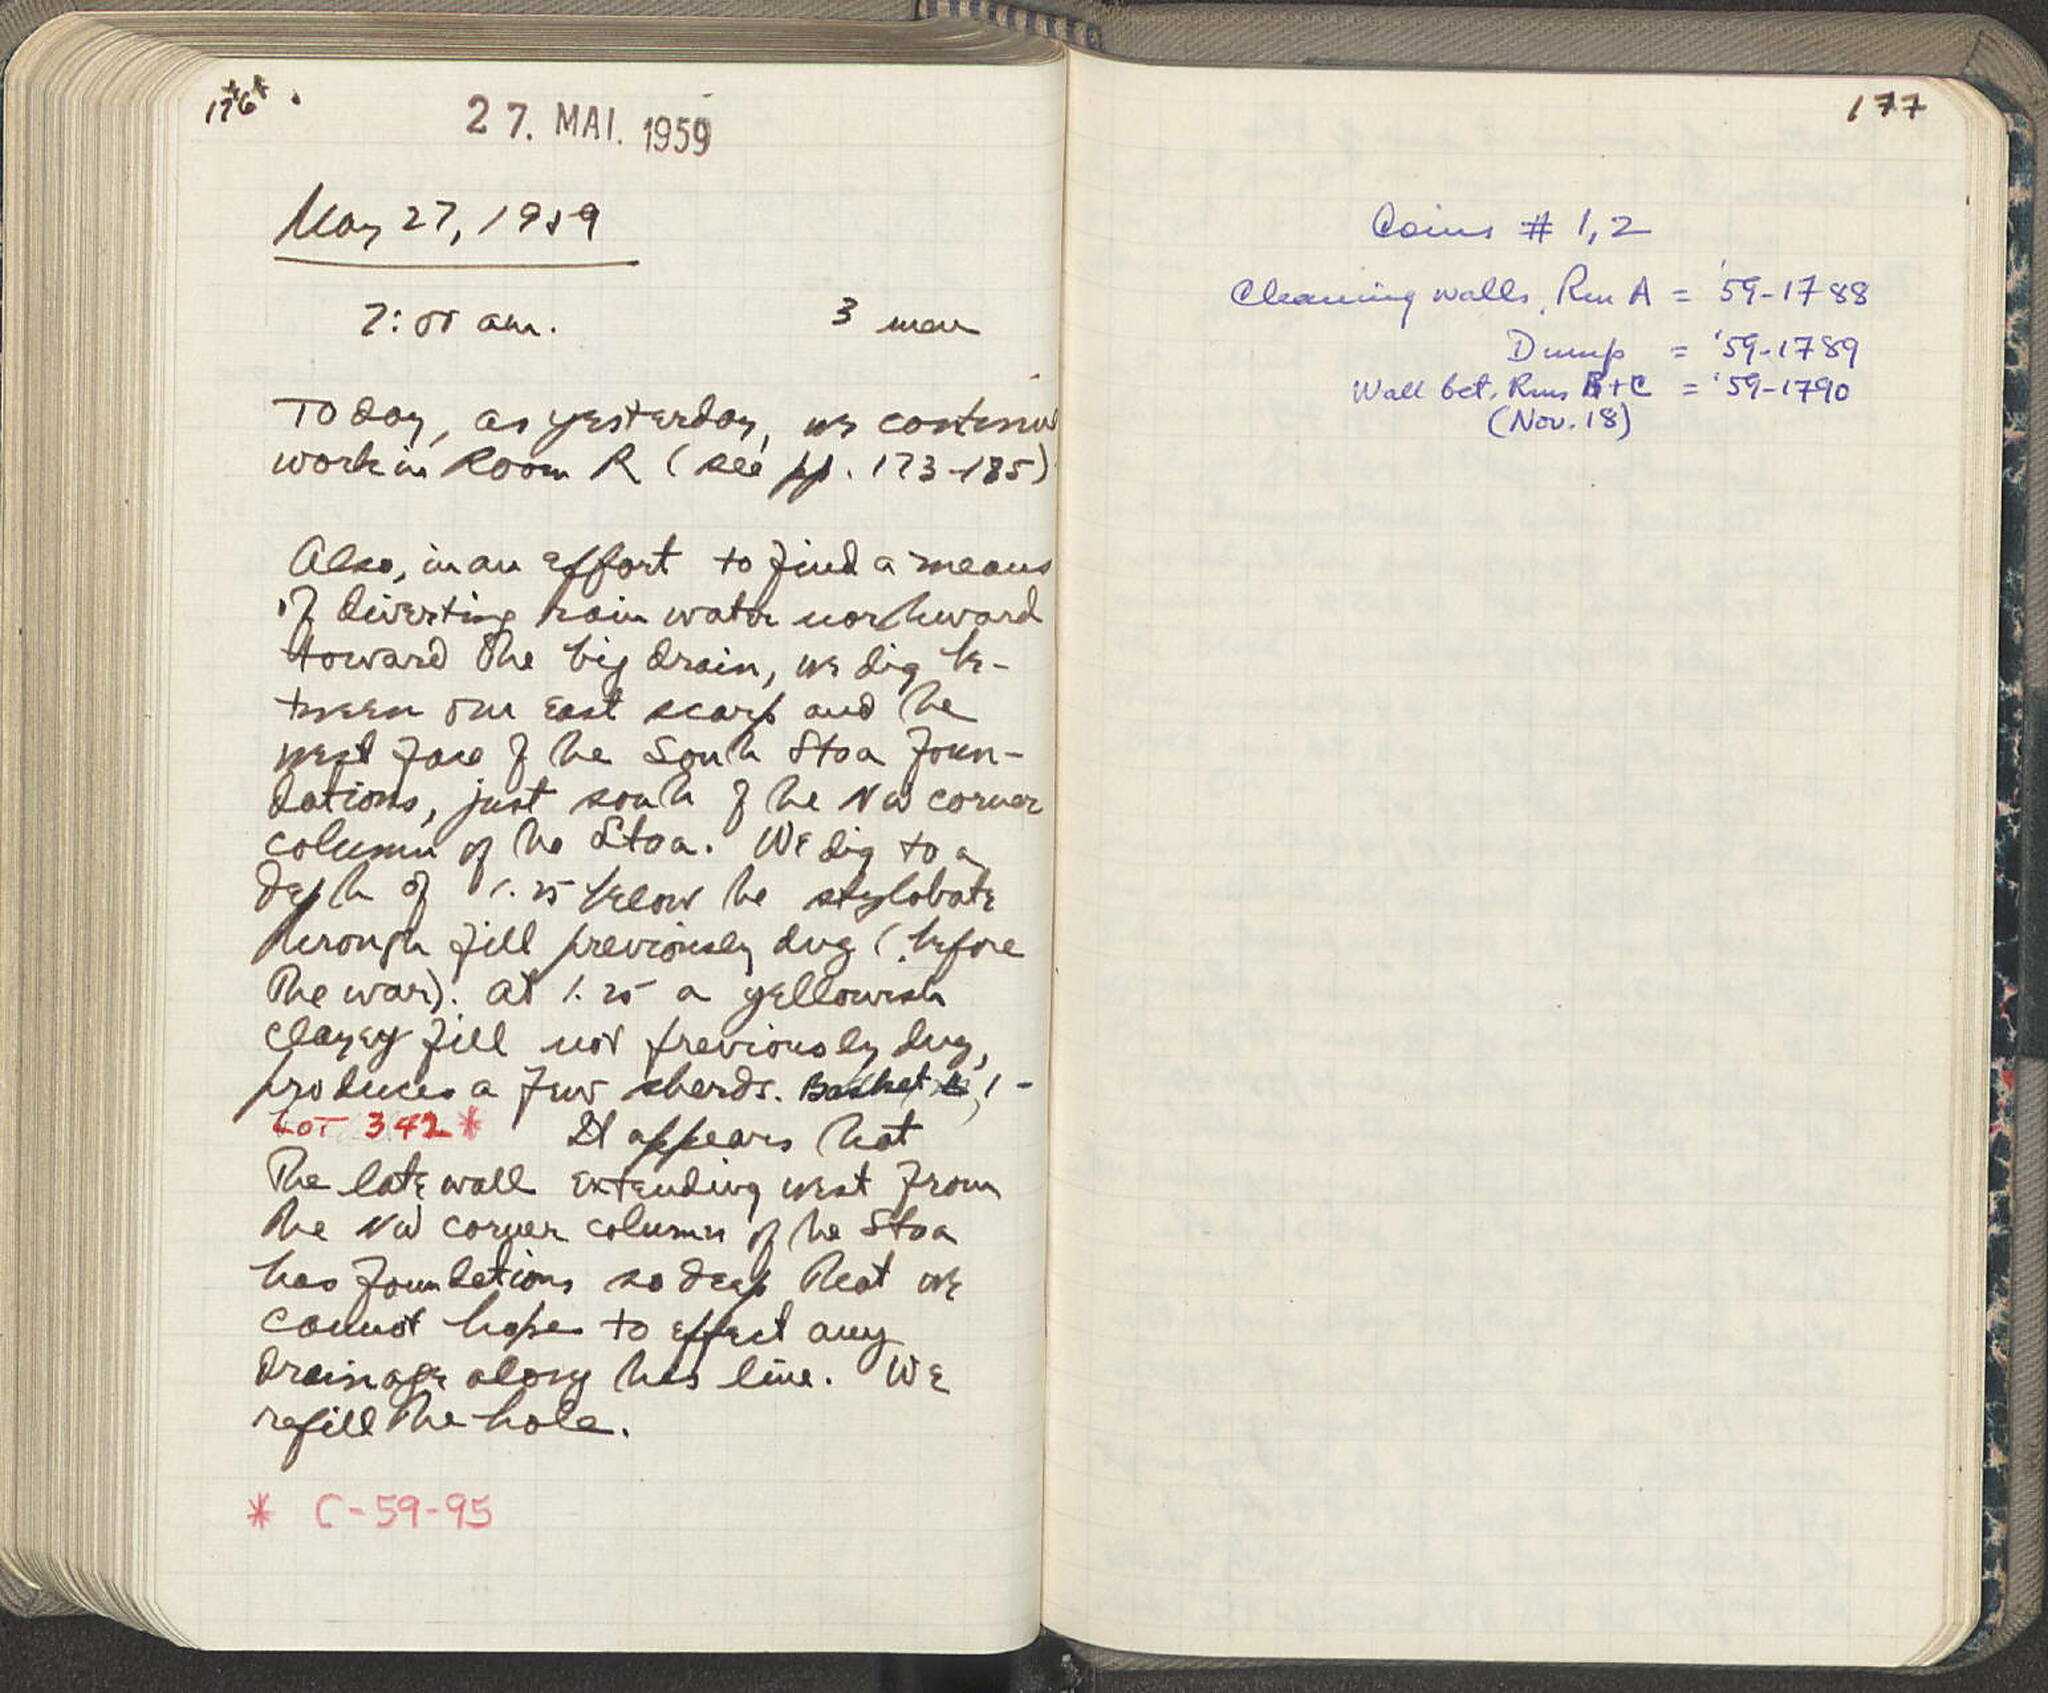 176
27. MAI. 1959
May 27, 1959
7:00 am. 3 men
Today, as yesterday, we continue
work in Room R (see pp. 173-185)
Also, in an effort to find a means
of diverting rain water northward
toward the big drain, we dig be-
tween our east scarp and the
west face of the South Stoa foun-
dations, just south of the NW corner
column of the Stoa. We dig to a
depth of 1.25 below the stylobate
through fill previously dug (before
the war). At 1.25 a yellowish
clayey fill not previously dug,
produces a few sherds. Basket 1 -
LOT 342* It appears that
the late wall extending west from
the NW corner column of the Stoa
has foundations so deep that we
cannot hope to effect any
drainage along this line. We
refill the hole.
* C-59-95
177
Coins # 1, 2
Cleaning walls, Rm A = '59-1788
Dump = '59-1789
Wall bet. Rms B+C = '59-1790
(Nov. 18)